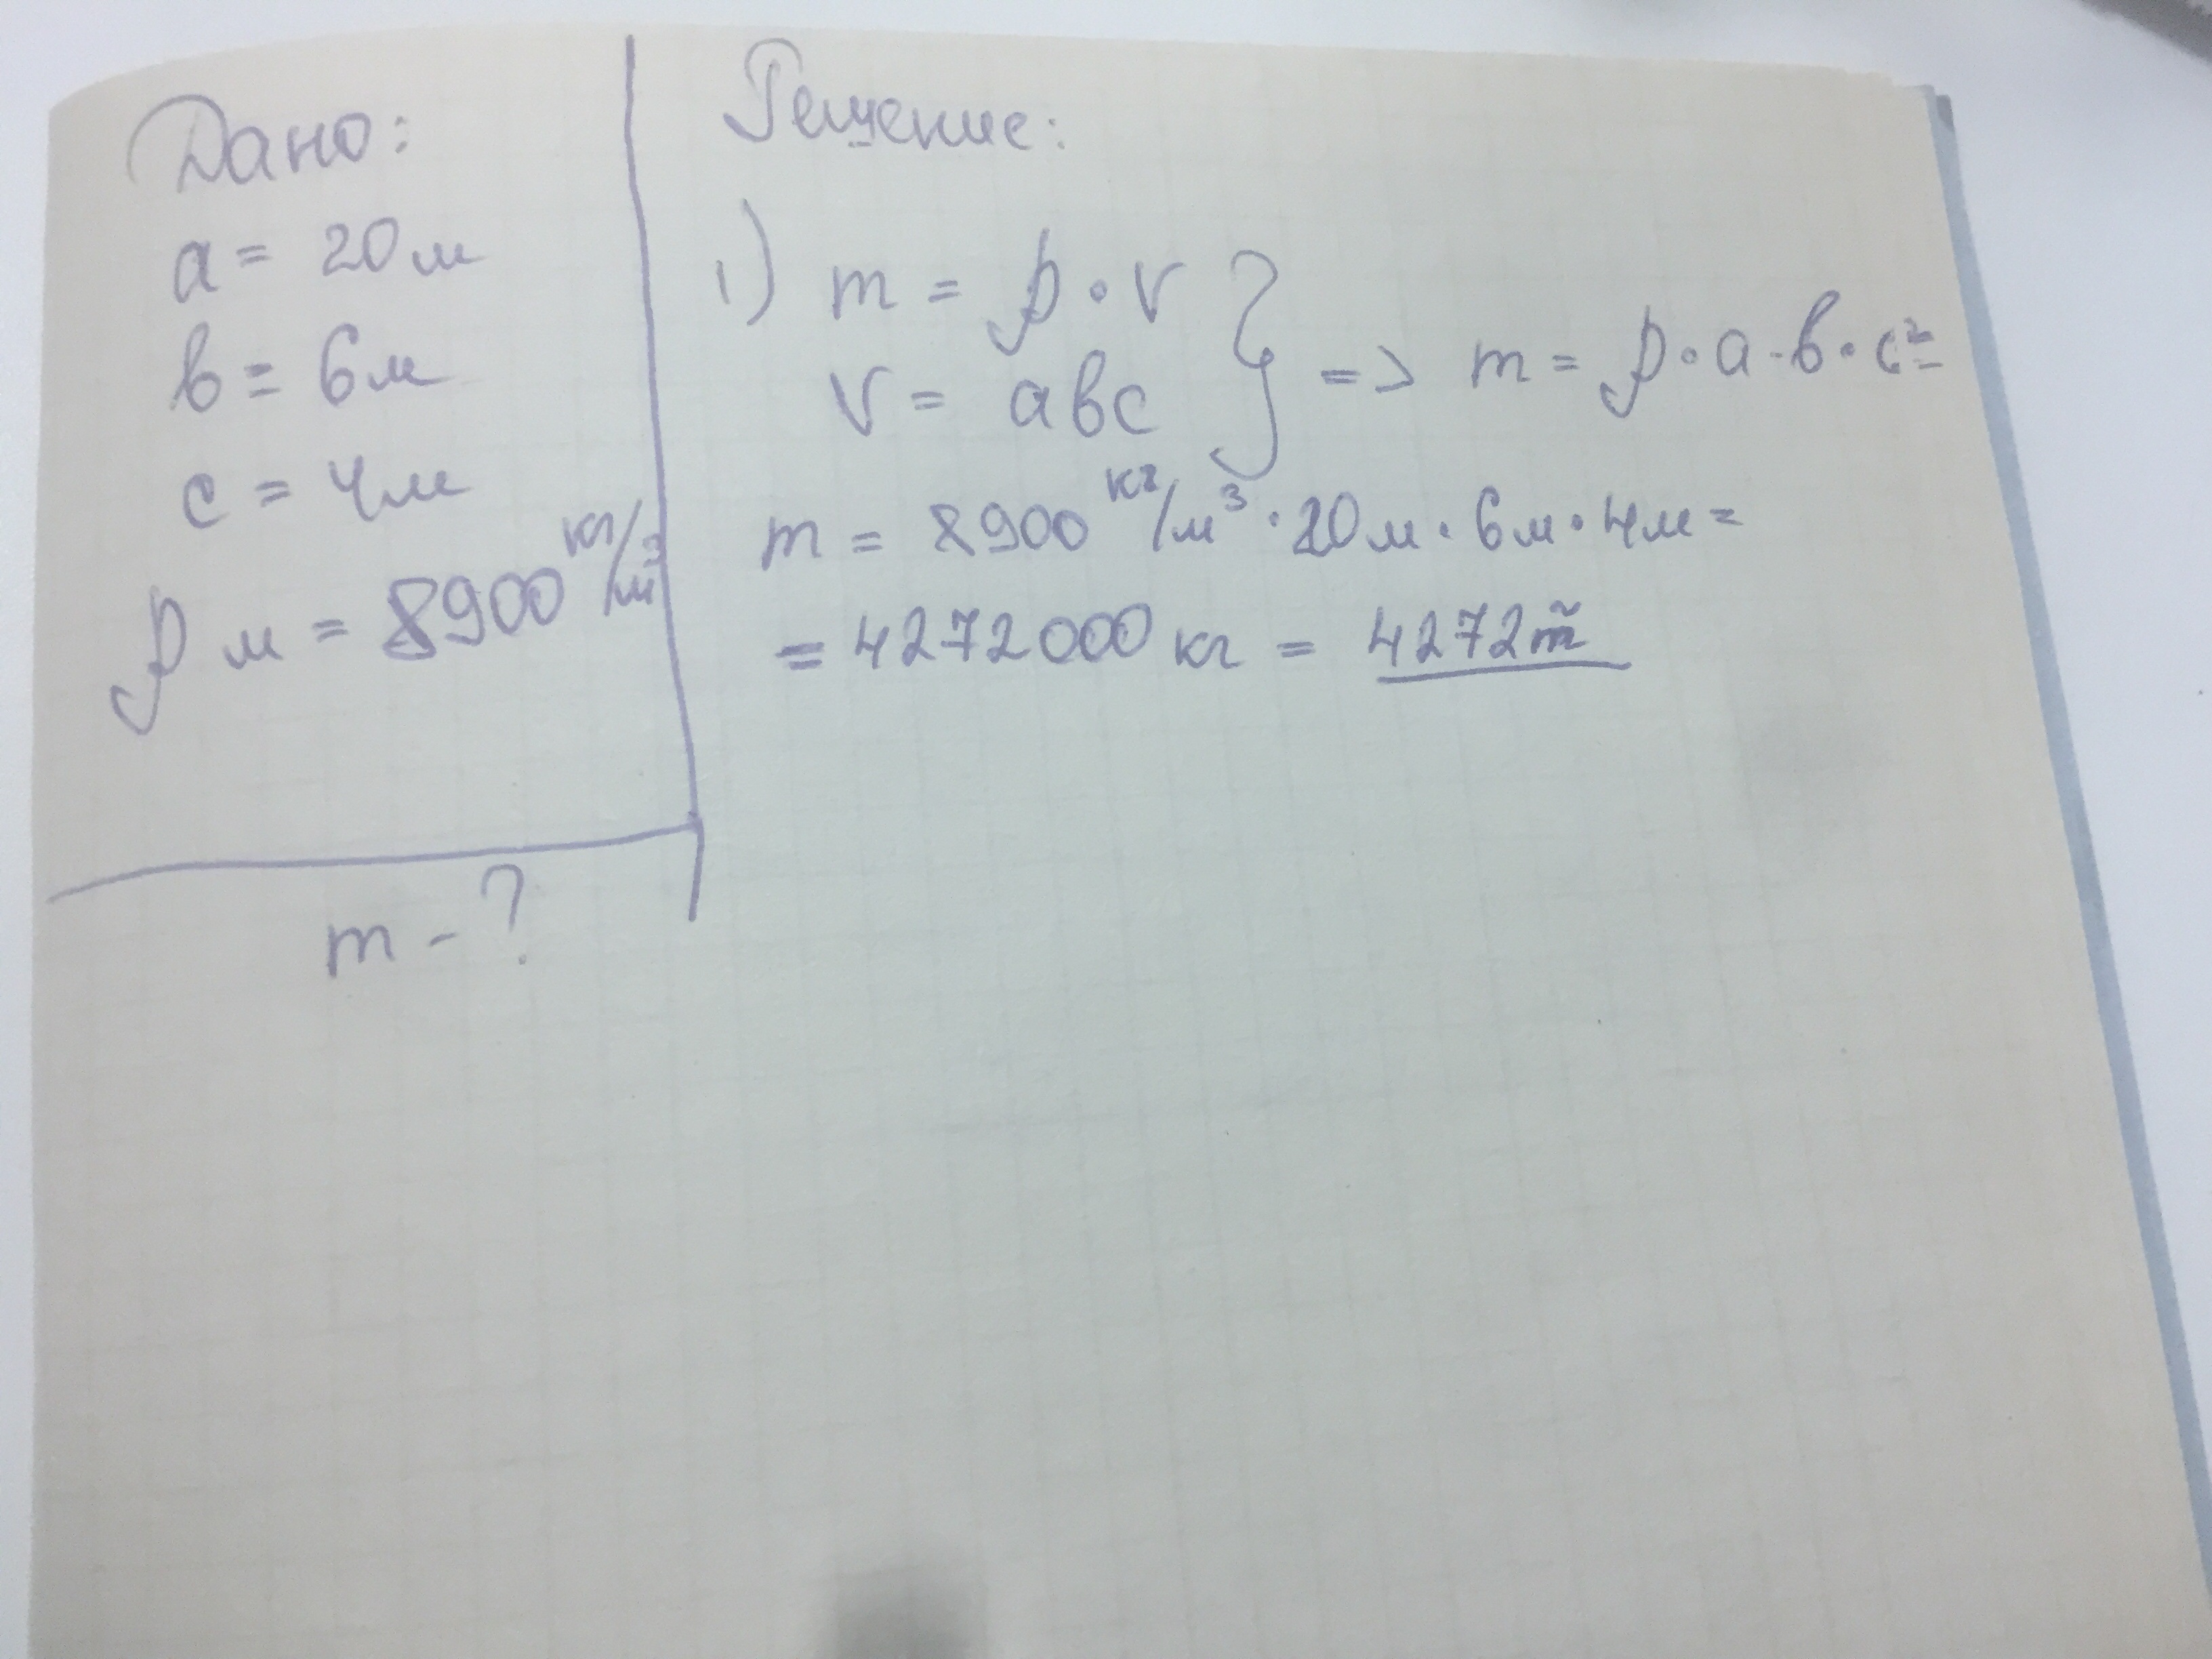 Дано:
a = 20 м
в = 6 м
c = 4 м
ρ м = 8900 кг/м³
m - ?
Решение:
1) m = ρ · V
V = aвc } => m = ρ · a · в · c =
m = 8900 кг/м³ · 20 м · 6 м · 4 м =
= 4272000 кг = 4272 т